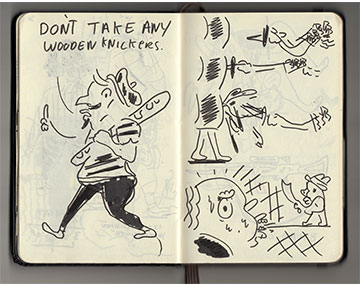 DON'T TAKE ANY
WOODEN KNICKERS.